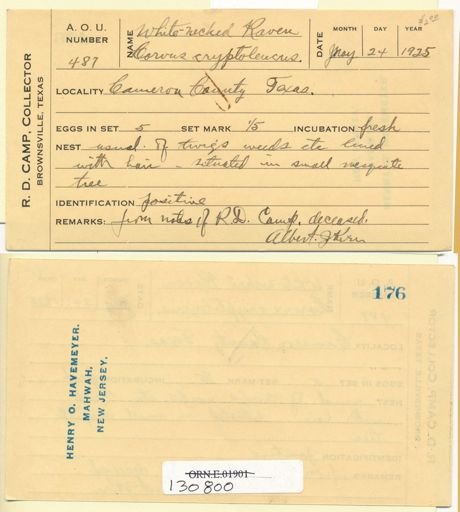 $2.00
A. O. U.
NUMBER
487
NAME White-necked Raven
Corvus cryptoleucus.
DATE MONTH DAY YEAR
May 24 1925
R. D. CAMP, COLLECTOR
BROWNSVILLE, TEXAS
LOCALITY Cameron County Texas.
EGGS IN SET 5 SET MARK 1/5 INCUBATION fresh
NEST usual. of twigs weeds etc lined
with hair - situated in small mesquite
tree
IDENTIFICATION positive
REMARKS: from notes of R.D. Camp, deceased.
Albert J Kirn
176
HENRY O. HAVEMEYER.
MAHWAH,
NEW JERSEY.
ORN.E.01901
130800